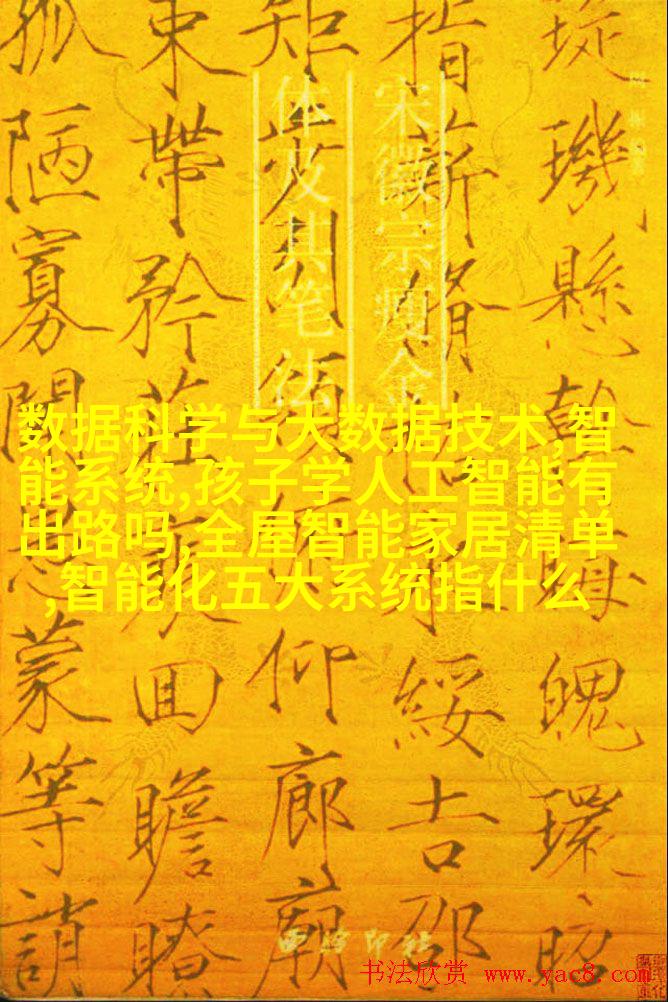 璣懸斡晦魄環照
指薪脩祜永綏吉邵
矩步引領俯仰廊廟
束帶矜莊回瞻眺
孤陋寡聞愚蒙等誚
宋徽宗瘦金
体及其笔法
数据科学与大数据技术,智
能系统,孩子学人工智能有
出路吗,全屋智能家居清单
,智能化五大系统指什么
西泠印社
书法欣赏 www.yac8.com